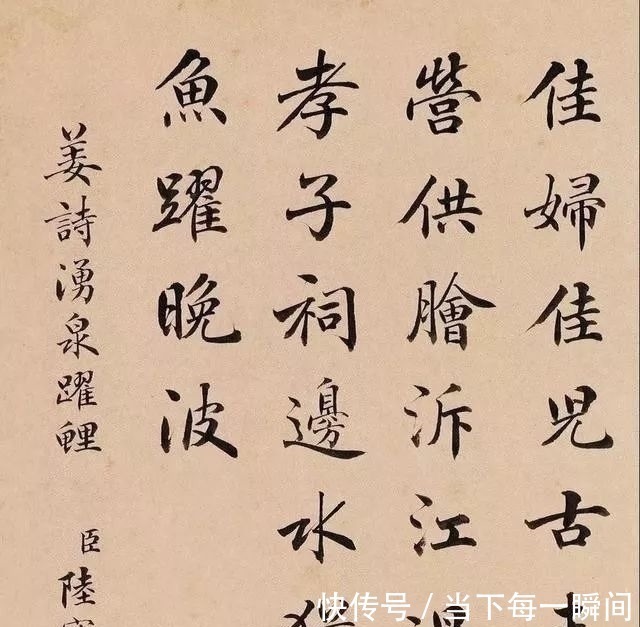 佳婦佳兒古
營供膾泝江
孝子祠邊水
魚躍晚波
姜詩湧泉躍鯉
臣陸
快传号/当下每一瞬间